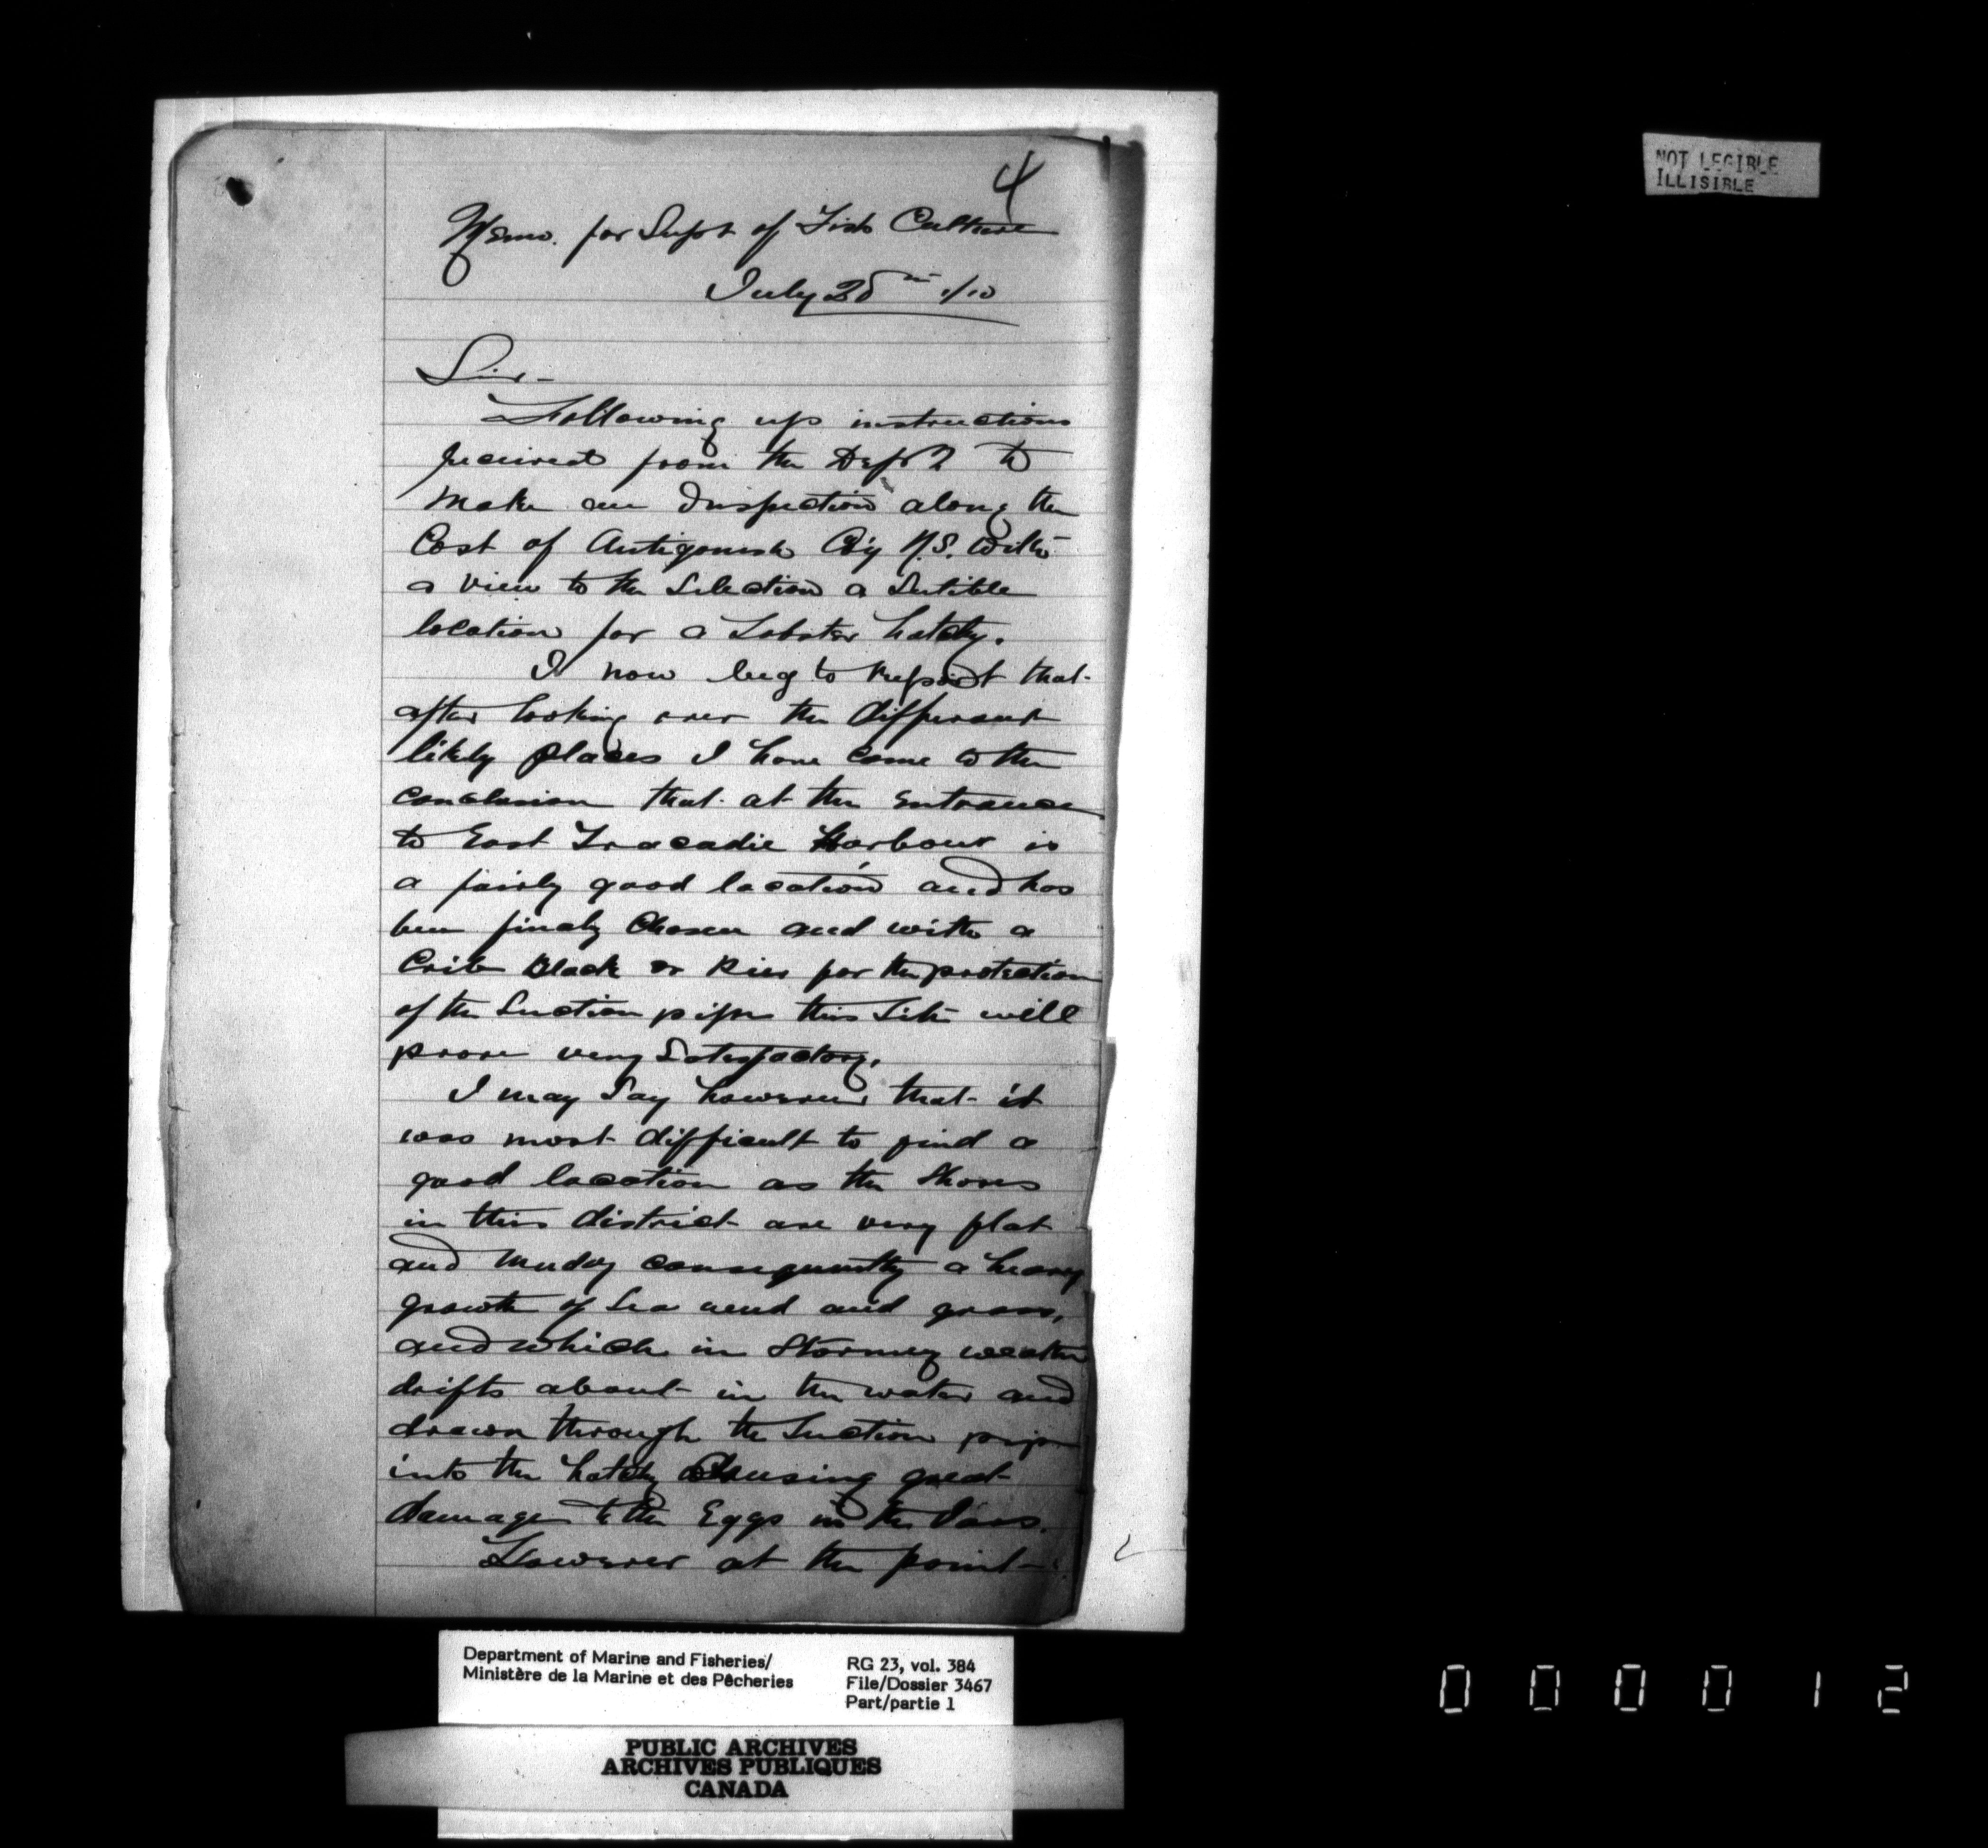 4
Memo. for Supt of Fish Culture
July 25th /10
Sir-
Following up instructions
received from the Dept to
make an Inspection along the
Cost of Antigonish Co'y N.S. with
a view to the Selection a Sutible
location for a Lobster hatchy.
I now beg to report that
after looking over the differant
likely places I have come to the
conclusion that at the entrance
to East Tracadie Harbour is
a fairly good location and has
been finaly chosen and with a
Crib Block or Pier for the protection
of the Suction pipe this Site will
prove very Satesfactory.
I may Say however that it
was most difficult to find a
good location as the Shores
in this district are very flat
and Mudy consequently a heavy
growth of Sea weed and grass,
and which in Stormey weather
drifts about in the water and
drawn through the Suction pipe
into the hatchy causing great
damage to the Eggs in the Jars.
However at the point
NOT LEGIBLE
ILLISIBLE
Department of Marine and Fisheries/
Ministère de la Marine et des Pêcheries
RG 23, vol. 384
File/Dossier 3467
Part/partie 1
PUBLIC ARCHIVES
ARCHIVES PUBLIQUES
CANADA
000012